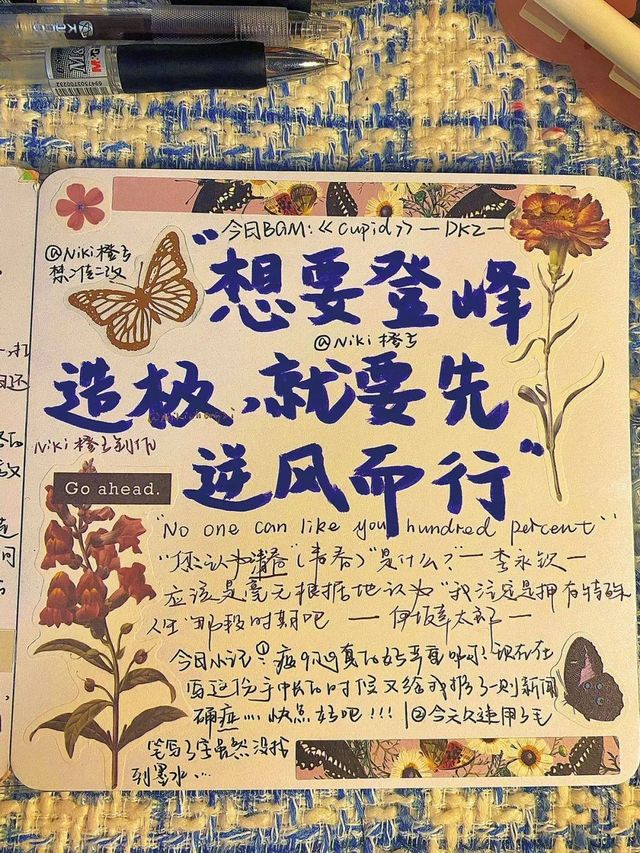 M&G
6947503700232
今日BGM:《Cupid》— DKZ —
@Niki橙子
禁止二改
“想要登峰
@Niki橙子
造极,就要先
Niki橙子制作
逆风而行”
Go ahead.
“No one can like you hundred percent”
“你认为清春(青春)”是什么?— 李永钦 —
应该是毫无根据地认为“我注定是拥有特殊
人生”那段时期吧 — 伊坂幸太郎 —
今日小记:① 疫情真的好严重啊!现在在
写这份手帐的时候又给我报了一则新闻
确症… 快点好吧!!! | ②今天久违用了毛
笔写了字虽然没找
到墨水…